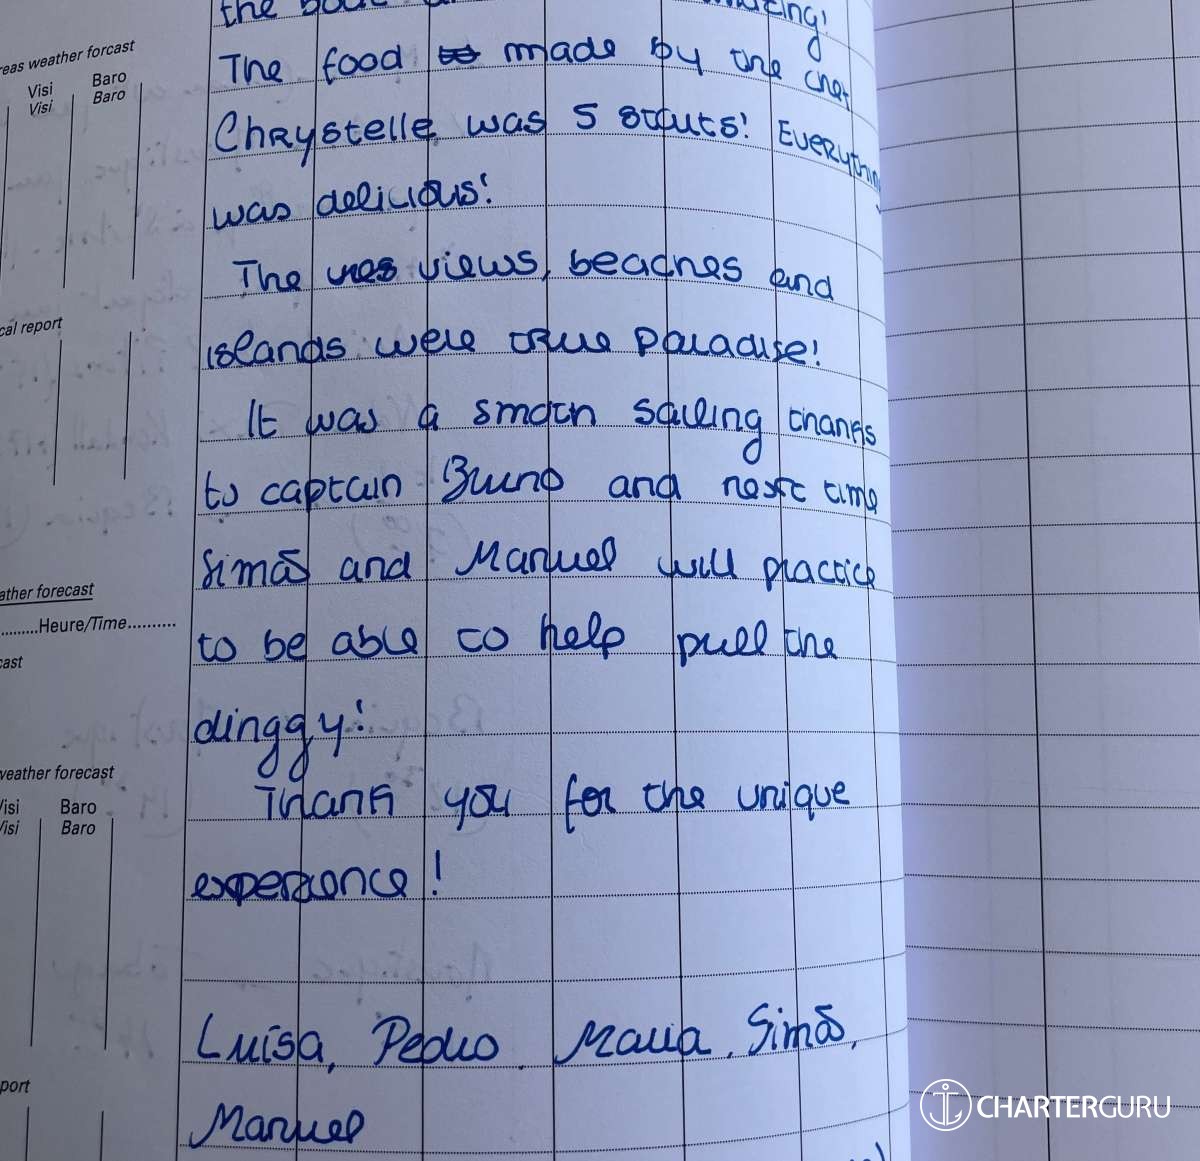 the
The food made by the chef
Chrystelle was 5 staŕs! Everything
was delicious!
The views, beaches and
islands were true paradise!
It was a smoth sailing thanks
to captain Bruno and next time
Simão and Manuel will practice
to be able to help pull the
dinggy!
Thank you for the unique
experience!
Luísa, Pedro, Maria, Simão,
Manuel
eas weather forcast
Visi Baro
Visi Baro
cal report
ather forecast
Heure/Time
cast
weather forecast
Visi Baro
Visi Baro
port
CHARTERGURU